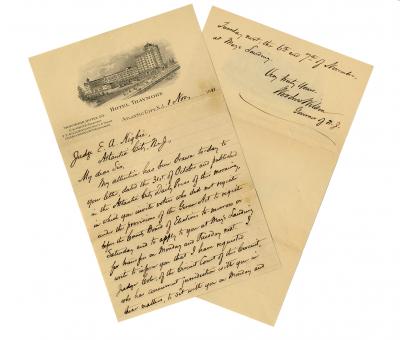 HOTEL TRAYMORE
TRAYMORE HOTEL CO.
ATLANTIC CITY, N.J. 1 Nov. 191
Judge E. A. Higbee,
Atlantic City, N.J.
My dear Sir,
My attention has been drawn to-day to
your letter, dated the 31st of October and published
in the Atlantic City Daily Press of this morning,
in which you invite voters who did not register
under the provisions of the Geran Act to register
before the County Board of Elections to-morrow or
Saturday and to apply to you at Mays Landing
for transfer on Monday and Tuesday next. I
write to inform you that I have requested
Judge Cole, of the Circuit Court of this Circuit,
who has concurrent jurisdiction with you in
these matters, to sit with you on Monday and
Tuesday next the 6th and 7th of November
at Mays Landing.
Very truly Yours
Woodrow Wilson
Governor of N.J.